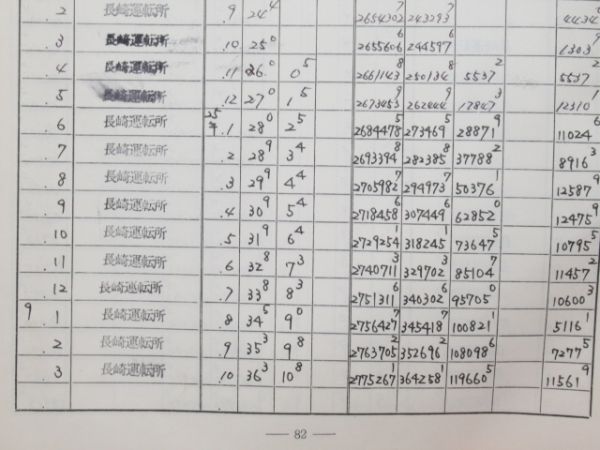 .2 長崎運転所 .9 24⁴ 2654302⁷ 243293⁷ 4434
.3 長崎運転所 .10 25⁰ 2655606⁶ 244597⁶ 1303⁹
.4 長崎運転所 .11 26⁰ 0⁵ 2661143⁸ 250134⁸ 5537² 5537²
.5 長崎運転所 .12 27⁰ 1⁵ 2673453⁹ 262444⁹ 17847³ 12310¹
.6 長崎運転所 35 .1 28⁰ 2⁵ 2684478⁵ 273469⁵ 28871⁹ 11024⁶
.7 長崎運転所 .2 28⁹ 3⁴ 2693394⁸ 282385⁸ 37788² 8916³
.8 長崎運転所 .3 29⁹ 4⁴ 2705982⁷ 294973⁷ 50376¹ 12587⁹
.9 長崎運転所 .4 30⁹ 5⁴ 2718458⁶ 307449⁶ 62852⁰ 12475⁹
.10 長崎運転所 .5 31⁹ 6⁴ 2729254¹ 318245¹ 73647⁵ 10795⁵
.11 長崎運転所 .6 32⁸ 7³ 2740711³ 329702³ 85104⁷ 11457²
.12 長崎運転所 .7 33⁸ 8³ 2751311⁶ 340302⁶ 95705⁰ 10600³
9 .1 長崎運転所 .8 34⁵ 9⁰ 2756427⁷ 345418⁷ 100821¹ 5116¹
.2 長崎運転所 .9 35³ 9⁸ 2763705² 352696² 108098⁶ 7277⁵
.3 長崎運転所 .10 36³ 10⁸ 2775267¹ 364258¹ 119660⁵ 11561⁹
— 82 —